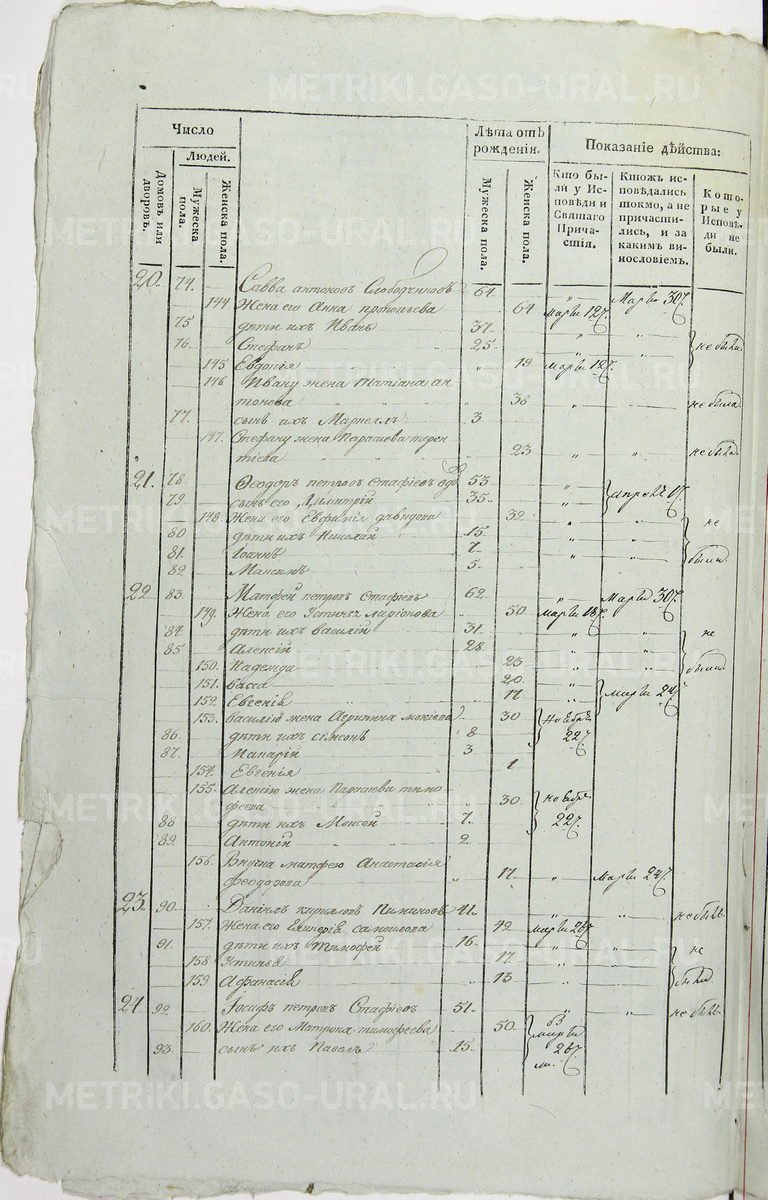 METRIKI.GASO-URAL.RU
Число
Людей.
Домовъ или дворовъ.
Мужеска пола.
Женска пола.
Лѣта отъ рожденія.
Мужеска пола.
Женска пола.
Показаніе дѣйства:
Кто были у Исповѣди и Святаго Причастія.
Ктожъ исповѣдались токмо, а не причастились, и за какимъ винословіемъ.
Которые у Исповѣди не были.
20. 74. Савва Антоновъ 64. Марта 30
144 Жена его Анна Прокопьева 64 Марта 12
75 дѣти ихъ Иванъ 37.
76. Стефанъ 25. не были
145 Евдокія 19 Марта 12
146 Ивану жена Татіана Ан
тонова 38 не была
77. сынъ ихъ 3
147. Стефану жена Парасква Терен
тьева 23 не была
21. 78. Ѳеодоръ Петровъ вдо 53
79. сынъ его Димитрій 35.
148. Жена его Евфанія Давидова 32 не
80 дѣти ихъ Николай 15.
81. Іоаннъ 7. были
82 Максимъ 5.
22 83. Матфей Петровъ 62. Марта 30
149. Жена его Устинья 50 Марта 18
84. дѣти ихъ Василій 31. не
85 Алексій 28.
150. Надежда 23 были
151. Васса 20.
152 Евгенія 17 Марта 24
153. Василію жена Агрипина 30 Ноября
86. дѣти ихъ Симеонъ 8 22
87. Макарій 3.
154. Евгенія 1
155. Алексію жена Парасква Тимо
феева 30. Ноября
88 дѣти ихъ Моисей 7. 22
89. Антоній 2
156. Внучка Матфею Анастасія
Феодорова 17. Марта 24
23 90. Даніилъ Кириловъ 41. не былъ
157. Жена его Самоилова 42 Марта 26
91. дѣти ихъ Тимофей 16. не
158 Устинья 17
159 Афанасія 13 были
24. 92 Іосифъ Петровъ 51. не былъ
160. Жена его Матрона Тимофеева 50. Марта
93. сынъ ихъ Павелъ 15. 26